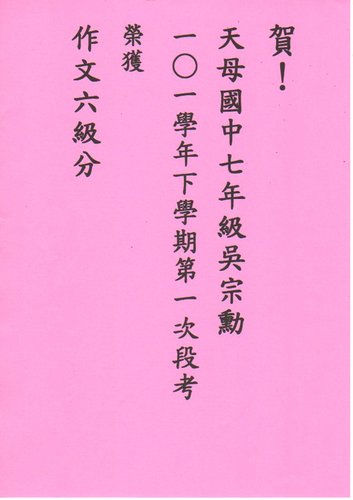 賀！
天母國中七年級吳宗勳
一〇一學年下學期第一次段考
榮獲
作文六級分